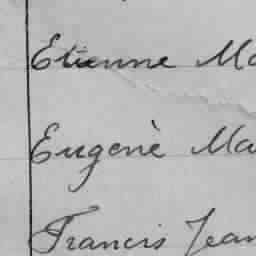 Etienne Ma
Eugenè Ma
Francis Jean